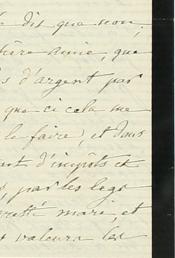 dit que non,
chère amie, que
d'argent par
que ci cela me
le faire), et dans
d'impôts et
par les legs
mari, et
valeurs les